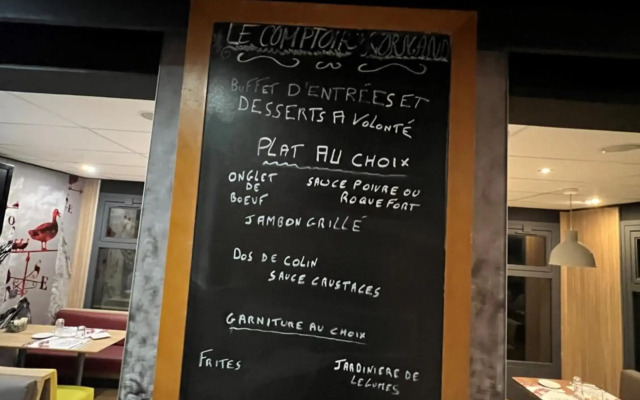 LE COMPTOIR
BUFFET D'ENTRÉES ET
DESSERTS A VOLONTÉ
PLAT AU CHOIX
ONGLET DE BOEUF
SAUCE POIVRE OU
ROQUEFORT
JAMBON GRILLÉ
DOS DE COLIN
SAUCE CRUSTACES
GARNITURE AU CHOIX
FRITES
JARDINIERE DE
LEGUMES